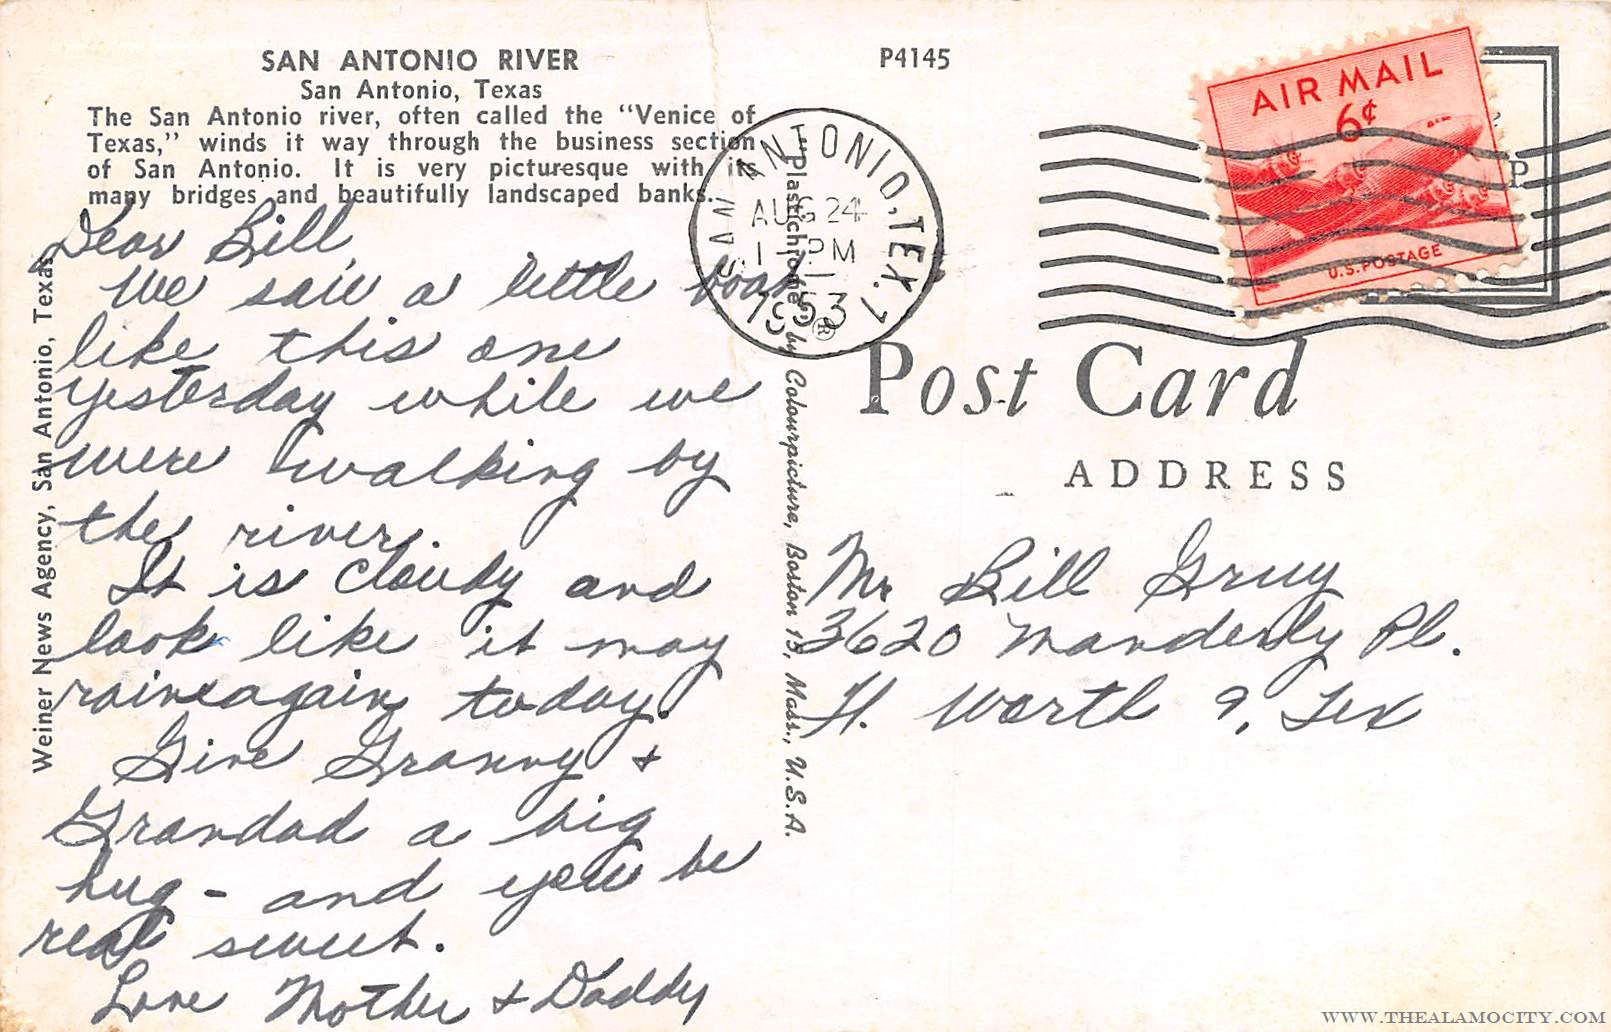 SAN ANTONIO RIVER
San Antonio, Texas
The San Antonio river, often called the "Venice of
Texas," winds it way through the business section
of San Antonio. It is very picturesque with its
many bridges and beautifully landscaped banks.
Dear Bill,
We saw a little boat
like this one
yesterday while we
were walking by
the river.
It is cloudy and
look like it may
raine again today.
Give Granny &
Grandad a big
hug - and you be
real sweet.
Love Mother & Daddy
Weiner News Agency, San Antonio, Texas
"Plastichrome"® by Colourpicture, Boston 15, Mass., U.S.A.
P4145
SAN ANTONIO, TEX. 1
AUG 24
PM
1953
AIR MAIL
6¢
U.S. POSTAGE
P
Post Card
ADDRESS
Mr Bill Gruy
3620 Manderly Pl.
Ft. Worth 9, Tex
WWW.THEALAMOCITY.COM